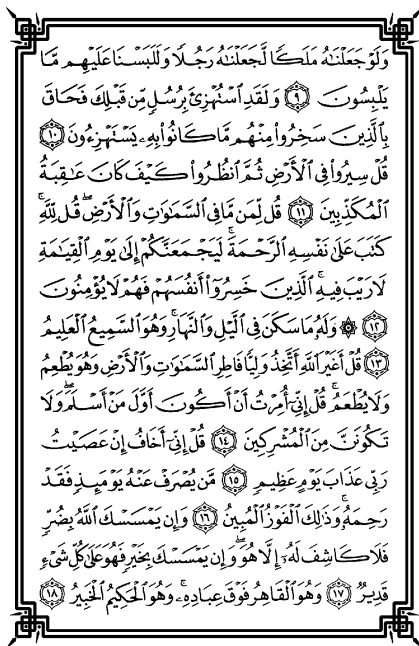 وَلَوۡ جَعَلۡنَٰهُ مَلَكٗا لَّجَعَلۡنَٰهُ رَجُلٗا وَلَلَبَسۡنَا عَلَيۡهِم مَّا
يَلۡبِسُونَ ٩ وَلَقَدِ ٱسۡتُهۡزِئَ بِرُسُلٖ مِّن قَبۡلِكَ فَحَاقَ
بِٱلَّذِينَ سَخِرُواْ مِنۡهُم مَّا كَانُواْ بِهِۦ يَسۡتَهۡزِءُونَ ١٠
قُلۡ سِيرُواْ فِي ٱلۡأَرۡضِ ثُمَّ ٱنظُرُواْ كَيۡفَ كَانَ عَٰقِبَةُ
ٱلۡمُكَذِّبِينَ ١١ قُل لِّمَن مَّا فِي ٱلسَّمَٰوَٰتِ وَٱلۡأَرۡضِۖ قُل لِّلَّهِۚ
كَتَبَ عَلَىٰ نَفۡسِهِ ٱلرَّحۡمَةَۚ لَيَجۡمَعَنَّكُمۡ إِلَىٰ يَوۡمِ ٱلۡقِيَٰمَةِ
لَا رَيۡبَ فِيهِۚ ٱلَّذِينَ خَسِرُوٓاْ أَنفُسَهُمۡ فَهُمۡ لَا يُؤۡمِنُونَ
١٢ ۞ وَلَهُۥ مَا سَكَنَ فِي ٱلَّيۡلِ وَٱلنَّهَارِۚ وَهُوَ ٱلسَّمِيعُ ٱلۡعَلِيمُ
١٣ قُلۡ أَغَيۡرَ ٱللَّهِ أَتَّخِذُ وَلِيّٗا فَاطِرِ ٱلسَّمَٰوَٰتِ وَٱلۡأَرۡضِ وَهُوَ يُطۡعِمُ
وَلَا يُطۡعَمُۗ قُلۡ إِنِّيٓ أُمِرۡتُ أَنۡ أَكُونَ أَوَّلَ مَنۡ أَسۡلَمَۖ وَلَا
تَكُونَنَّ مِنَ ٱلۡمُشۡرِكِينَ ١٤ قُلۡ إِنِّيٓ أَخَافُ إِنۡ عَصَيۡتُ
رَبِّي عَذَابَ يَوۡمٍ عَظِيمٖ ١٥ مَّن يُصۡرَفۡ عَنۡهُ يَوۡمَئِذٖ فَقَدۡ
رَحِمَهُۥۚ وَذَٰلِكَ ٱلۡفَوۡزُ ٱلۡمُبِينُ ١٦ وَإِن يَمۡسَسۡكَ ٱللَّهُ بِضُرّٖ
فَلَا كَاشِفَ لَهُۥٓ إِلَّا هُوَۖ وَإِن يَمۡسَسۡكَ بِخَيۡرٖ فَهُوَ عَلَىٰ كُلِّ شَيۡءٖ
قَدِيرٞ ١٧ وَهُوَ ٱلۡقَاهِرُ فَوۡقَ عِبَادِهِۦۚ وَهُوَ ٱلۡحَكِيمُ ٱلۡخَبِيرُ ١٨